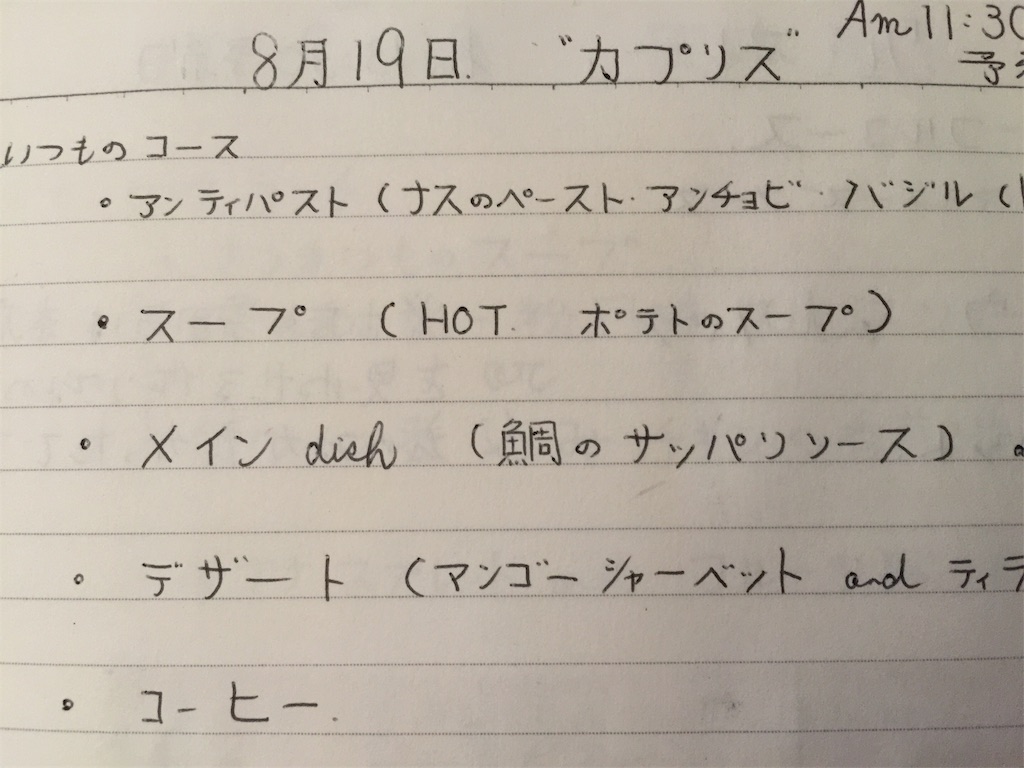 8月19日. "カプリス" Am 11:30
いつものコース
・アンティパスト (ナスのペースト・アンチョビ・バジル (
・スープ (HOT. ポテトのスープ)
・メイン dish (鯛のサッパリソース)
・デザート (マンゴーシャーベット and ティラ
・コーヒー.